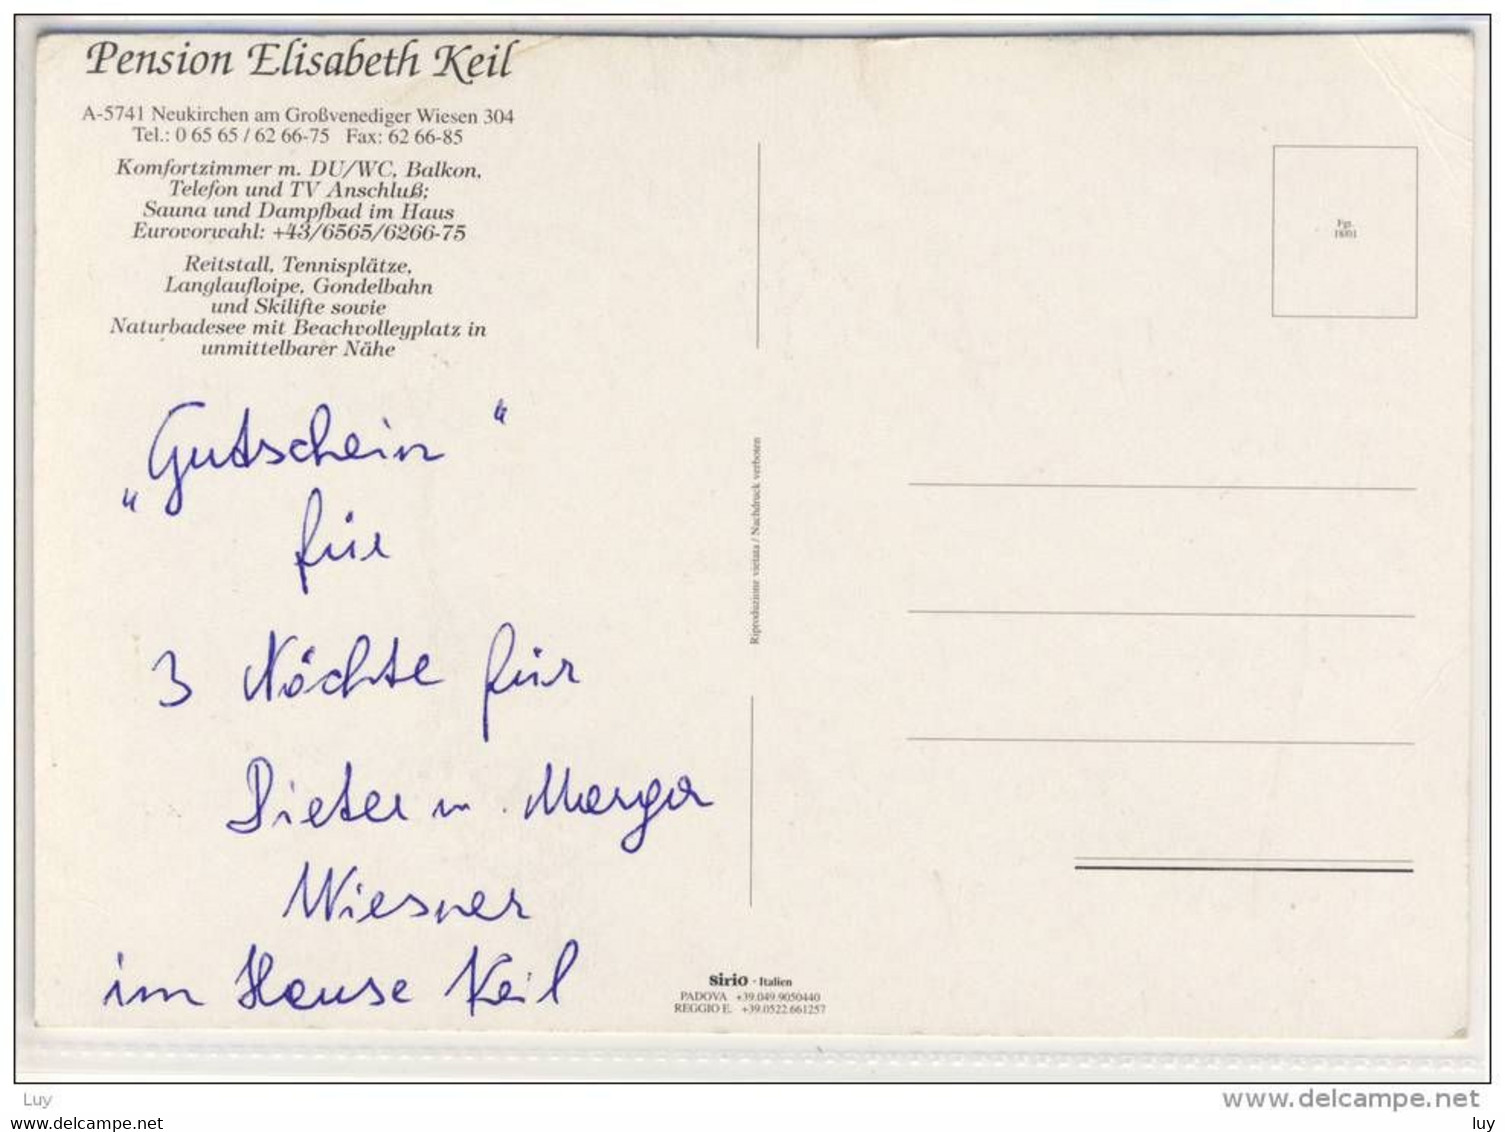 Pension Elisabeth Keil
A-5741 Neukirchen am Großvenediger Wiesen 304
Tel.: 0 65 65 / 62 66-75 Fax: 62 66-85
Komfortzimmer m. DU/WC, Balkon,
Telefon und TV Anschluß;
Sauna und Dampfbad im Haus
Eurovorwahl: +43/6565/6266-75
Reitstall, Tennisplätze,
Langlaufloipe, Gondelbahn
und Skilifte sowie
Naturbadesee mit Beachvolleyplatz in
unmittelbarer Nähe
„Gutschein“
für
3 Nächte für
Dieter u. Marga
Wiesner
im Hause Keil
Riproduzione vietata / Nachdruck verboten
Fgt.
18/01
sirio - Italien
PADOVA +39.049.9050440
REGGIO E. +39.0522.661257
Luy
www.delcampe.net
www.delcampe.net
luy